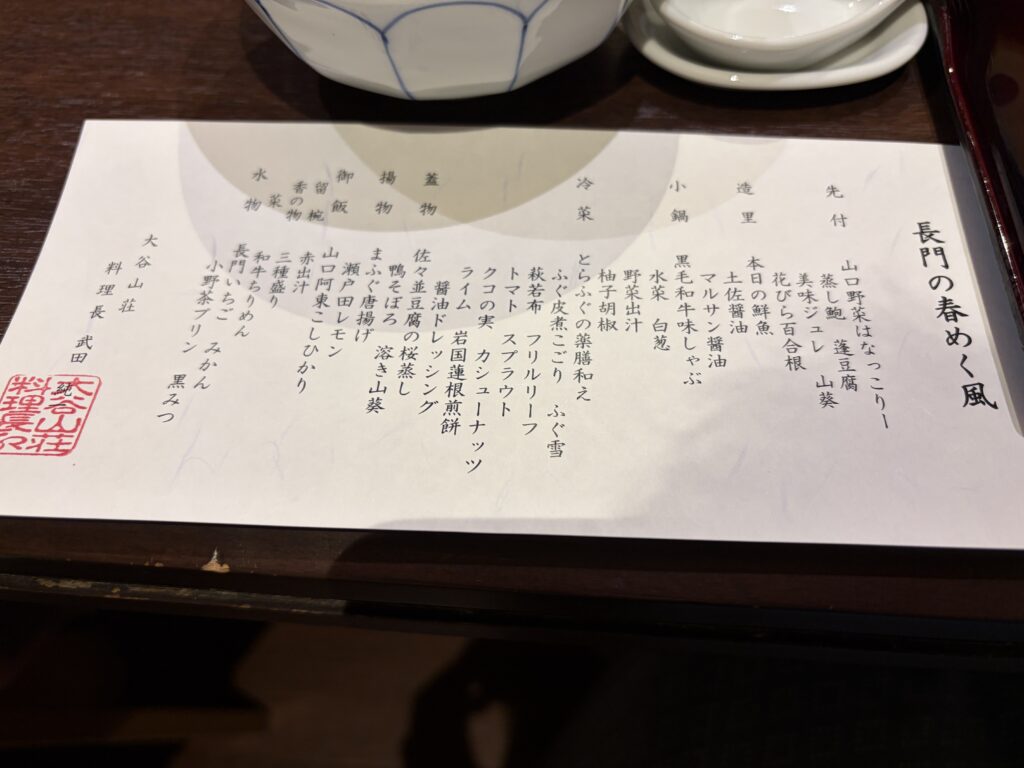 長門の春めく風
先付 山口野菜はなっこりー
蒸し鮑 蓬豆腐
美味ジュレ 山葵
花びら百合根
造里 本日の鮮魚
土佐醤油
マルサン醤油
小鍋 黒毛和牛味しゃぶ
水菜 白葱
野菜出汁
柚子胡椒
冷菜 とらふぐの薬膳和え
ふぐ皮煮こごり ふぐ雪
萩若布 フリルリーフ
トマト スプラウト
クコの実 カシューナッツ
ライム 岩国蓮根煎餅
醤油ドレッシング
蓋物 佐々並豆腐の桜蒸し
鴨そぼろ 溶き山葵
揚物 まふぐ唐揚げ
瀬戸田レモン
御飯 山口阿東こしひかり
留椀 赤出汁
香の物 三種盛り
菜 和牛ちりめん
水物 長門いちご みかん
小野茶プリン 黒みつ
大谷山荘
料理長 武田 純
大谷山荘
料理長